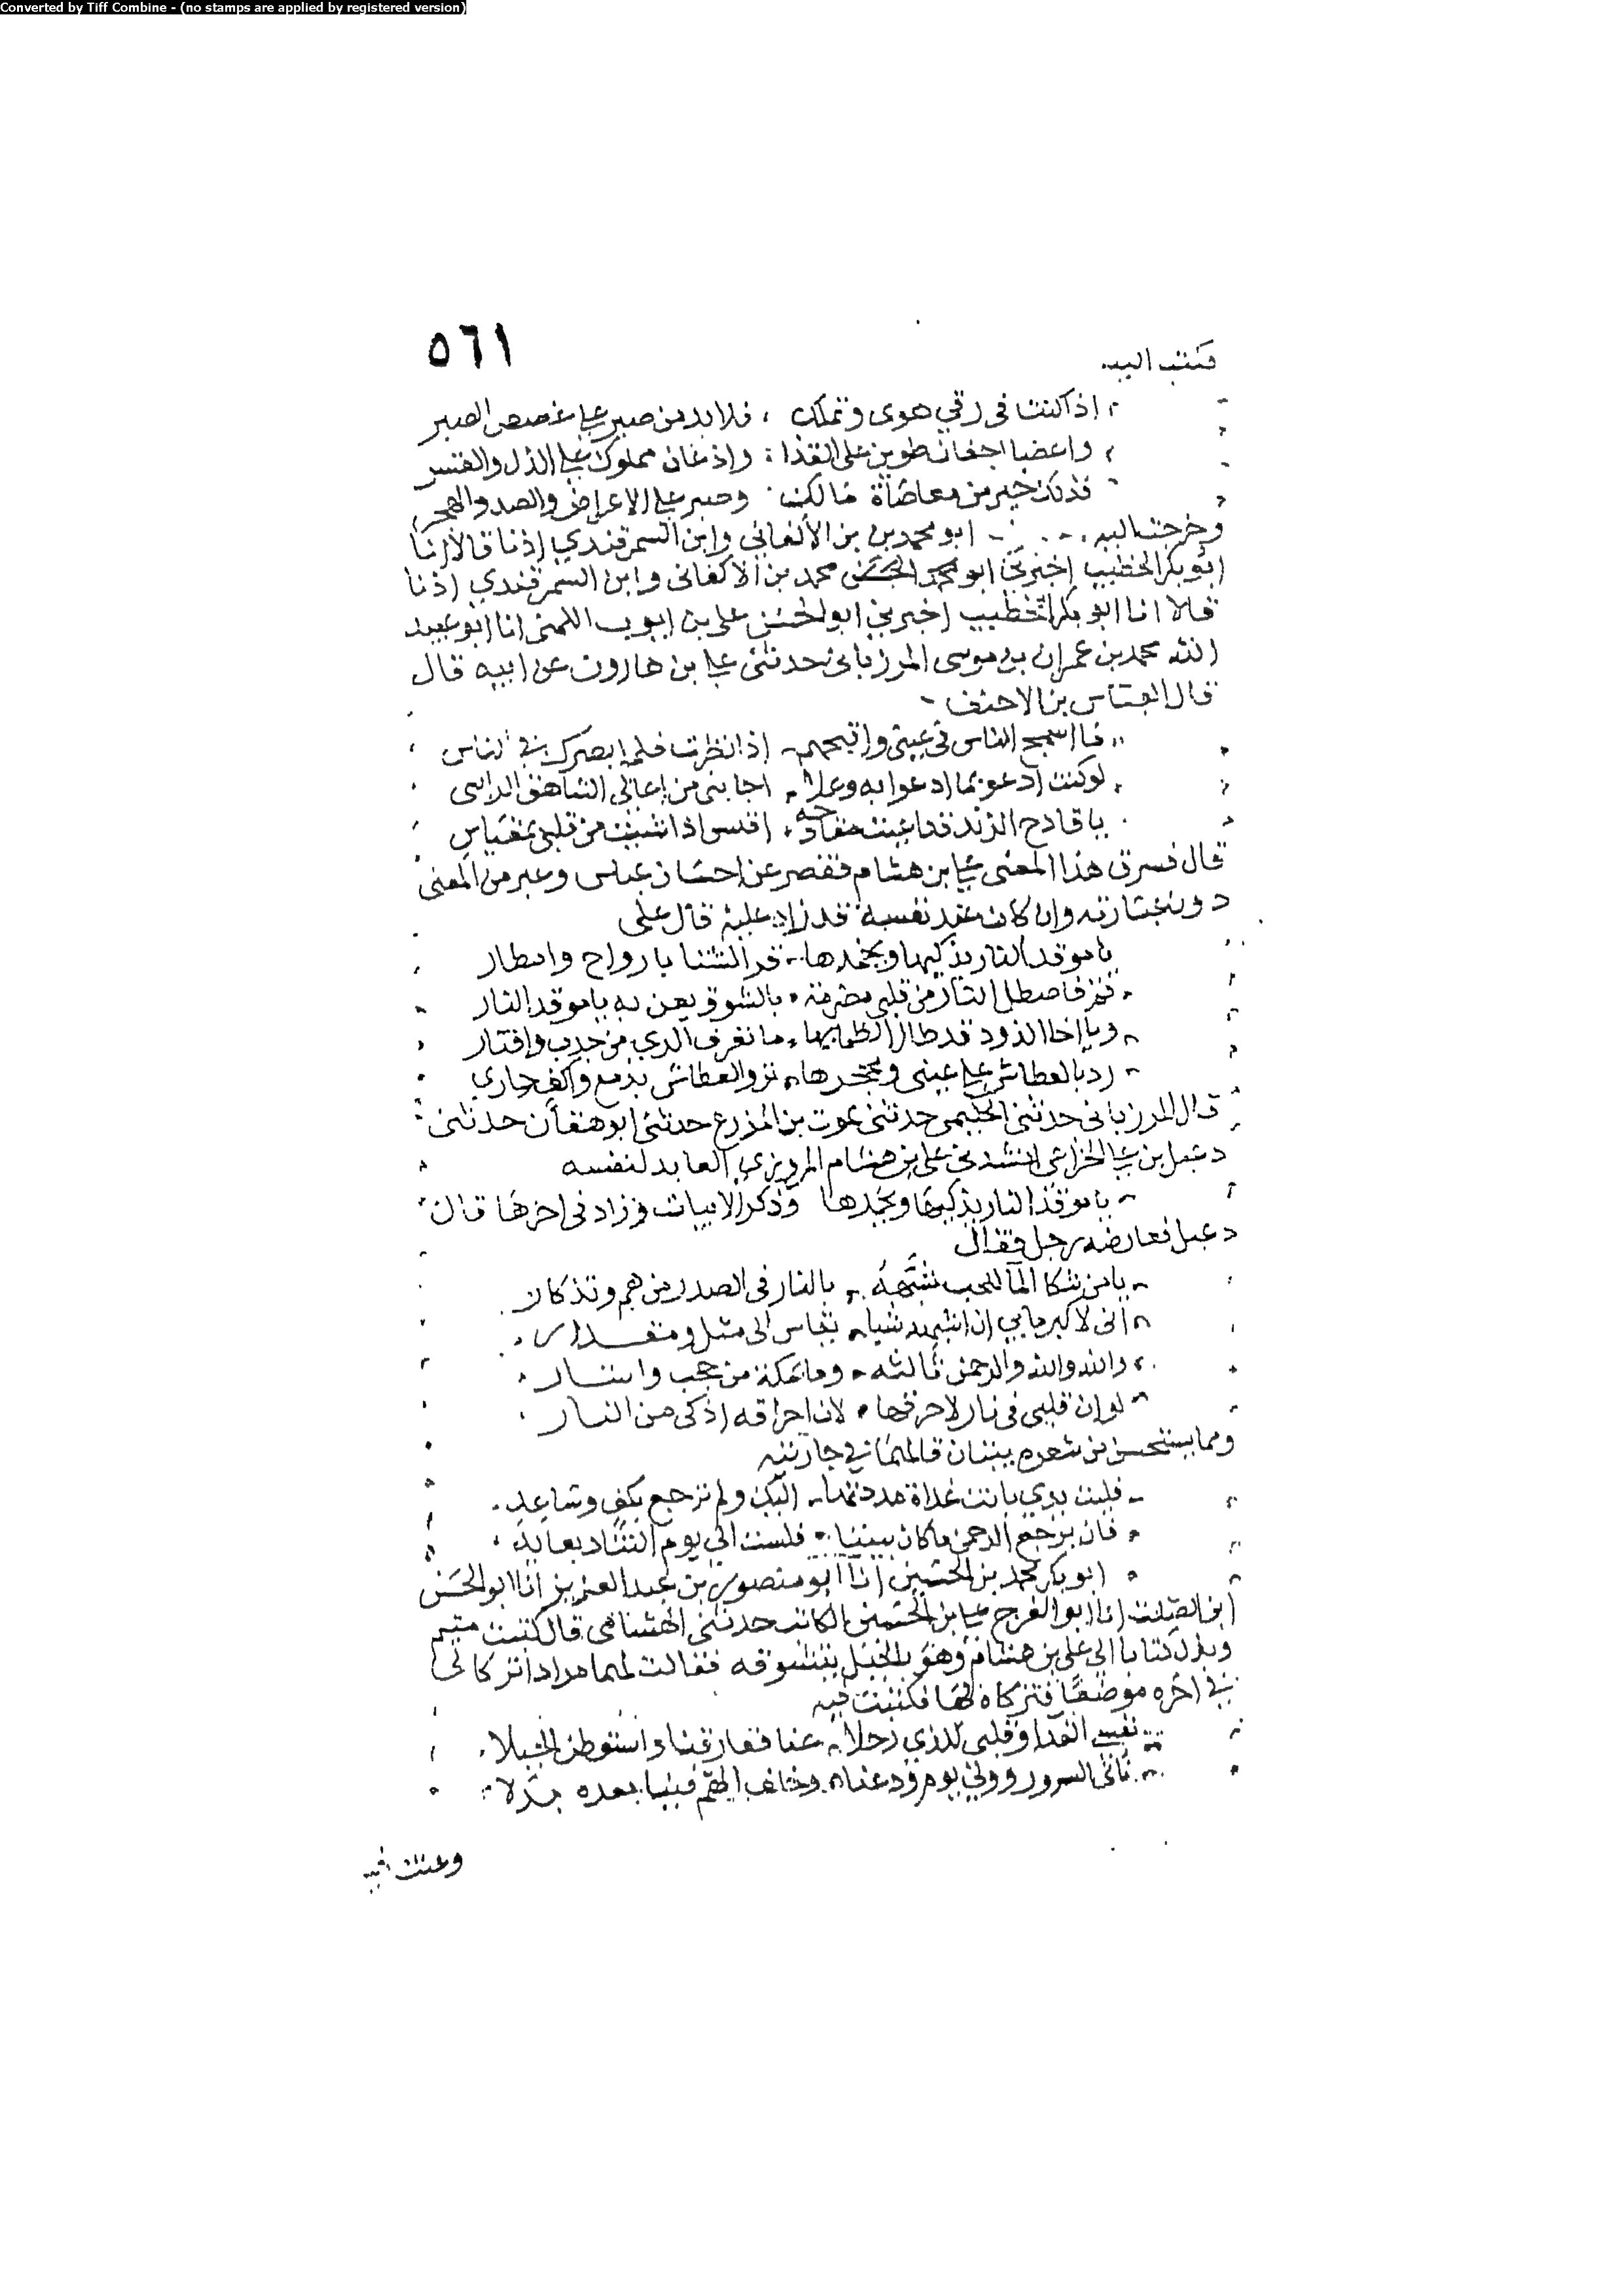 Converted by Tiff Combine - (no stamps are applied by registered version)
٥٦١
فكتب اليه
اذا كنت في رقي هوى وتملك فلا بد من صبر على غصص الصبر
واغضا اجفان طوين على القذا واذعان مملوك على الذل والقسر
فذلك خير من معاصاة مالك وصبر على الاعراض والصد والهجر
وخرجت اليه ابو محمد بن بن الألفاني وابن السمرقندي اذنا قالا انا
ابو بكر الخطيب اخبرني ابو محمد محمد بن الاكفاني وابن السمرقندي اذنا
قالا انا ابو بكر الخطيب اخبرني ابو الحسن علي بن ايوب القمي انا ابو عبيد
الله محمد بن عمران بن موسى المرزباني حدثني علي بن هارون عن ابيه قال
قال العباس بن الاحنف
ما اسمج الناس في عيني واقبحهم اذا نظرت فلم ابصرك في الناس
لو كنت ادعو بما ادعوا به وعلا اجابني من اعالي الشاهق الراسي
يا قادح الزند قد اعيت مقادحه اقبس اذا شئت من قلبي بمقياس
قال فسرق هذا المعنى علي بن هشام فقصر عن احسان عباس وعبر من المعنى
دون عبارته وان كان عند نفسه قد زاد عليه قال علي
يا موقد النار يذكيها ويخمدها قر الشتا بارواح وامطار
قم فاصطل النار من قلبي مضرمة بالشوق يغن به يا موقد النار
ويا اخا الذود قد طال الظما بها ما تعرف الري من جدب واقتار
رد بالعطاش على عيني ومحجرها تزو العطاش بدمع واكف جاري
قال المرزباني حدثني الحكيمي حدثني يموت بن المزرع حدثني ابو هفان حدثني
دعبل بن علي الخزاعي انشدني علي بن هشام المروزي العابد لنفسه
يا موقد النار يذكيها ويخمدها وذكر الابيات وزاد في اخرها قال
دعبل فعارضه رجل فقال
يا من شكا الما للحب شبهه بالنار في الصدر من هم وتذكار
اني لاكبر ما بي ان اشبهه شيا يقاس الى مثل ومقدار
والله والله والرحمن ثالثه وما بمكة من حجب واستار
لو ان قلبي في نار لاحرقها لان احراقه اذكى من النار
ومما يستحسن من شعره بيتان قالهما في جاريته
فليت يدي بانت غداة مددتها اليك ولم ترجع بكف وساعد
فان يرجع الرحمن ما كان بيننا فلست الى يوم التناد بعايد
ابو بكر محمد بن الحسين انا ابو منصور بن عبد العزيز انا ابو الحسن
ابن الصلت انا ابو الفرج علي بن الحسين الكاتب حدثني الهشامي قال كتبت متيم
وبذل كتابا الى علي بن هشام وهو بالجبل يتشوقه فقالت لهما مراد اتركا لي
في اخره موضعا فتركاه لها فكتبت فيه
نفسي الفدا وقلبي للذي رحلا عنا ففارقنا واستوطن الجبلا
نأى السرور وولى يوم ودعنا وخلف الهم فينا بعده بدلا
وعنت فيه